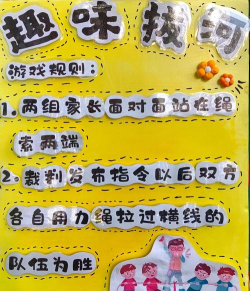 趣味拔河
游戏规则：
1.两组家长面对面站在绳
索两端
2.裁判发布指令以后双方
各自用力绳拉过横线的
队伍为胜